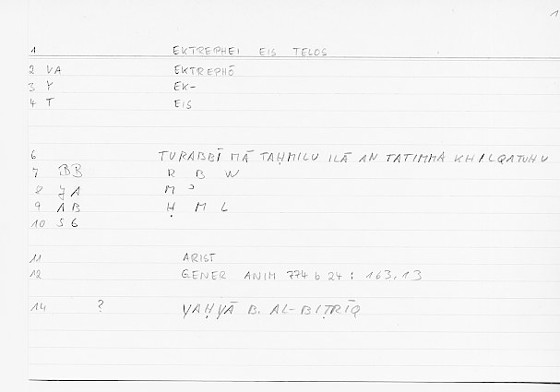 1
1 EKTREPHEI EIS TELOS
2 VA EKTREPHŌ
3 Y EK-
4 T EIS
6 TURABBĪ MĀ TAḤMILU ILĀ AN TATIMMA KHILQATUHU
7 BB R B W
8 JA M ʾ
9 AB Ḥ M L
10 SG
11 ARIST
12 GENER ANIM 774 b 24 : 163,13
14 ? YAḤYĀ B. AL-BIṬRĪQ